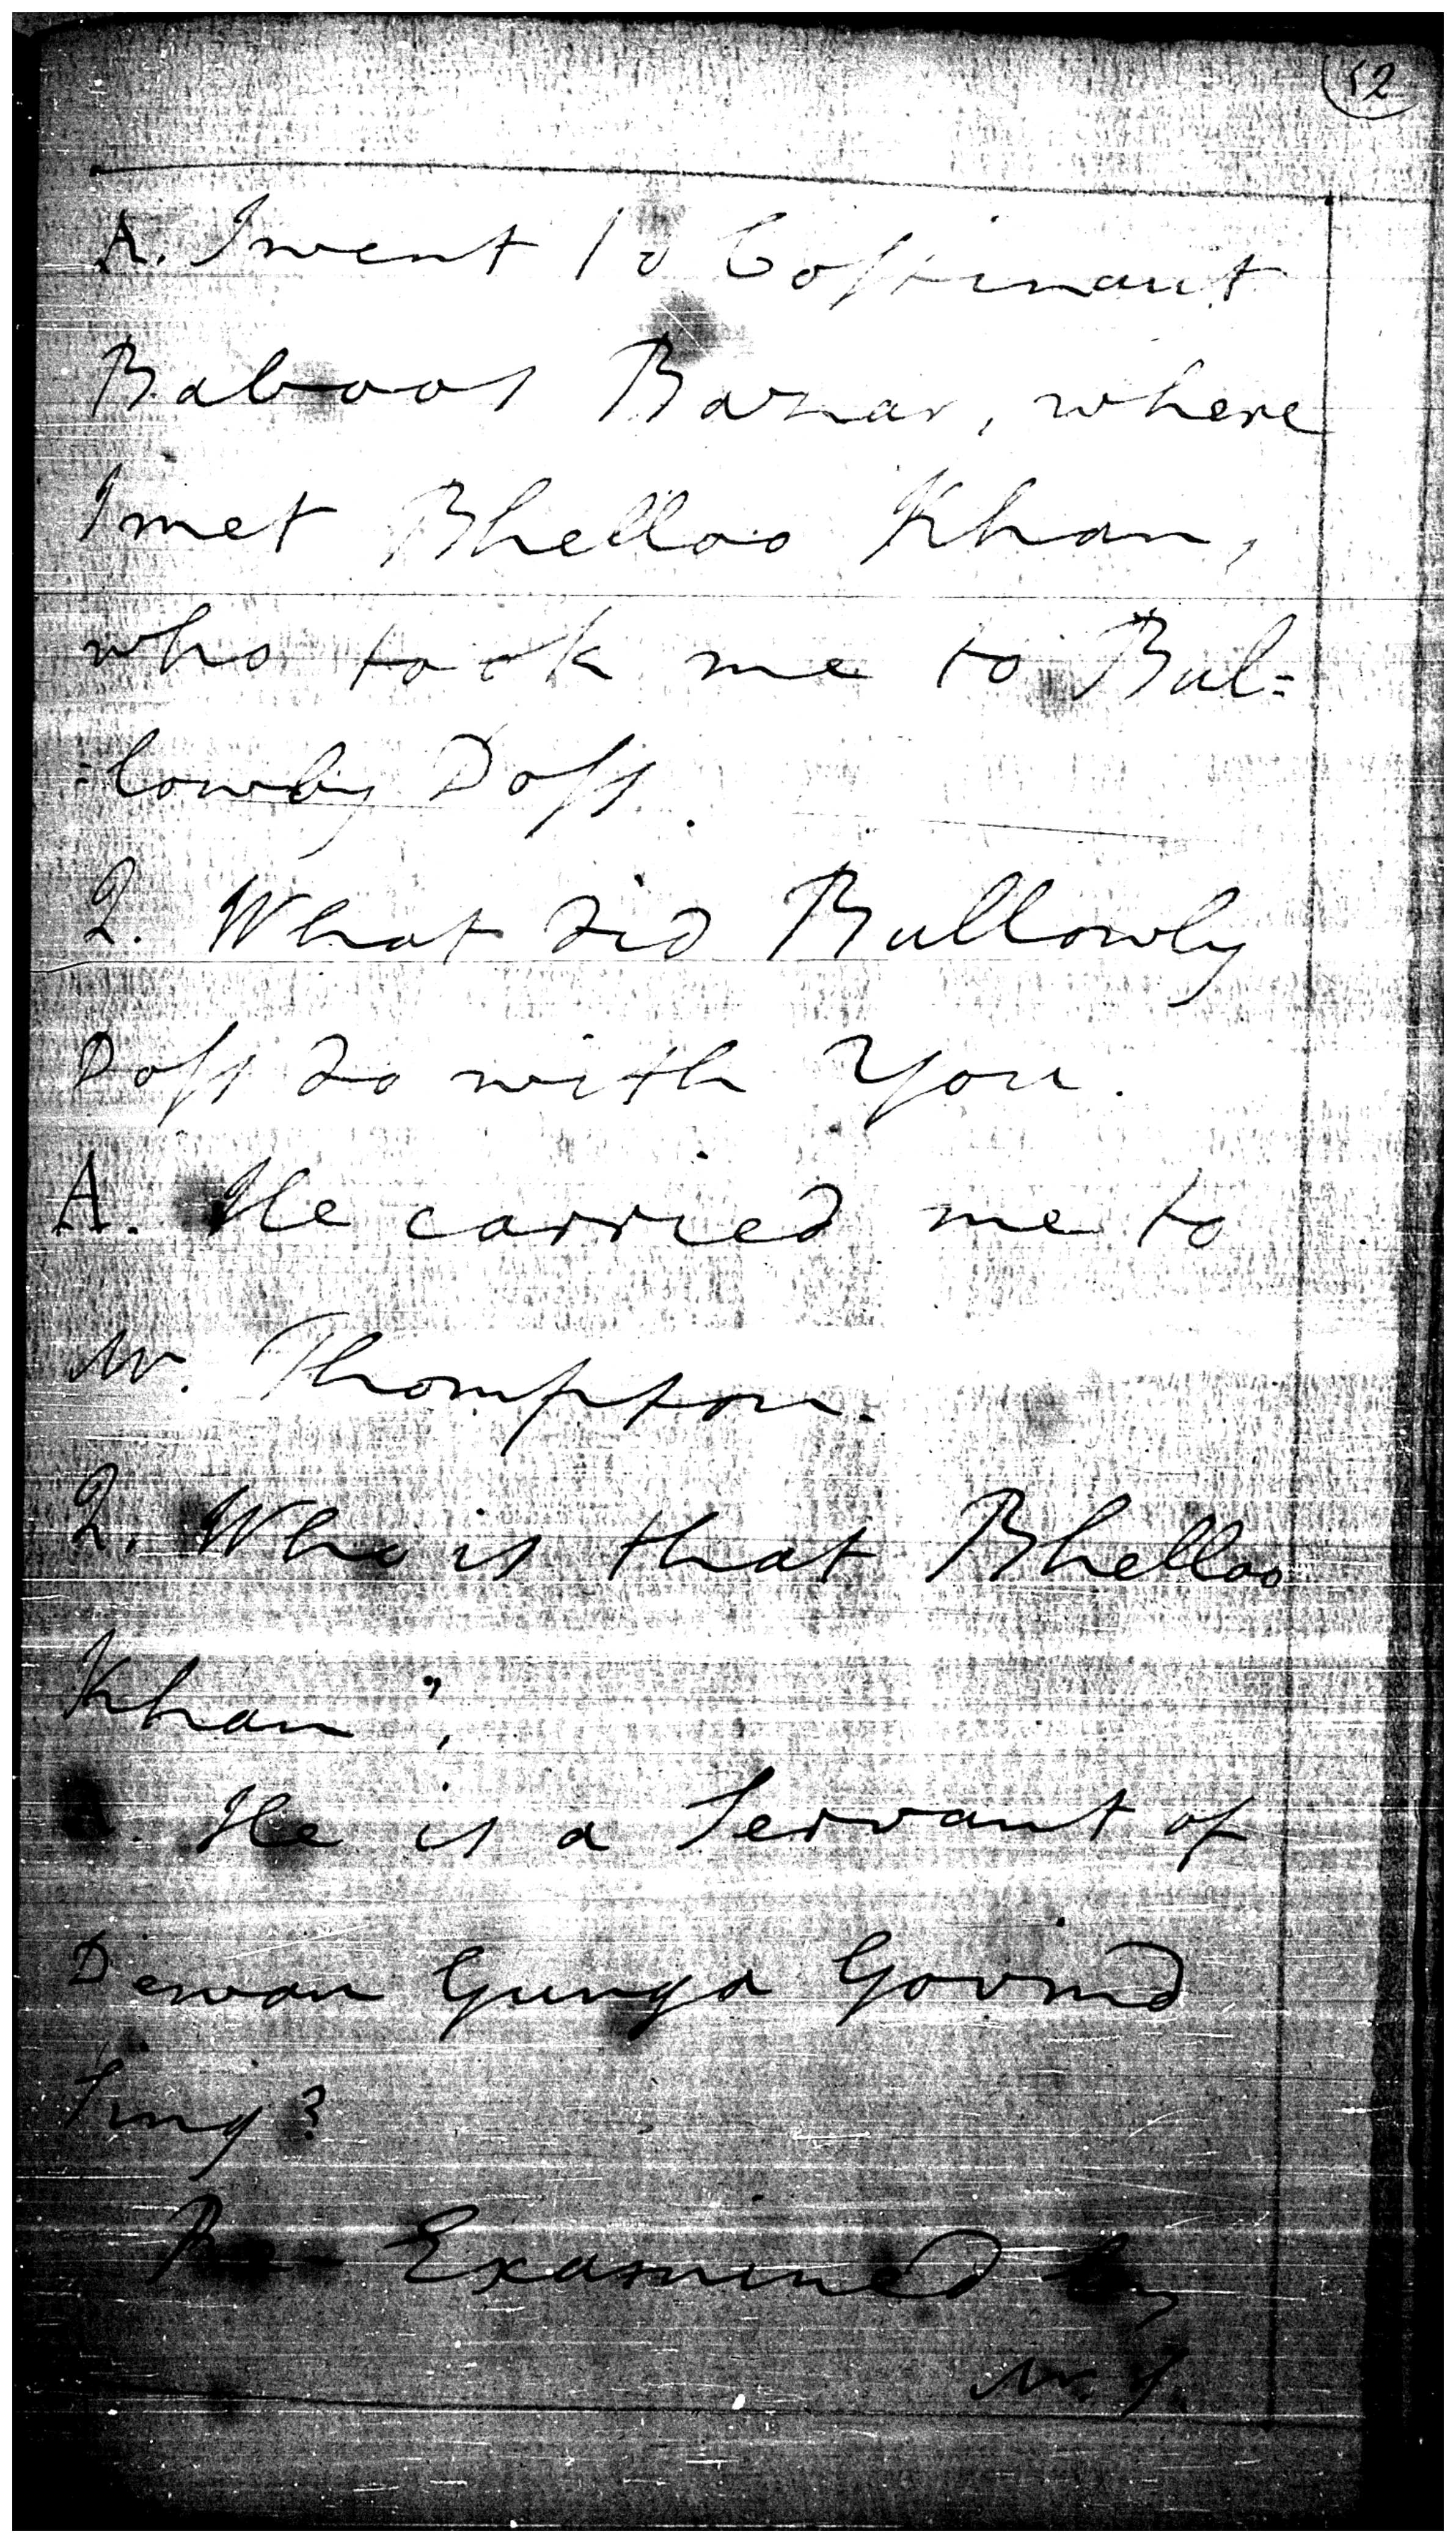 52
A. I went to Cossinaut
Baboos Bazar, where
I met Bhelloo Khan,
who took me to Bul=
=lowby Doss.
Q. What did Bullowby
Doss do with You.
A. He carried me to
Mr. Thompson.
Q. Who is that Bhelloo
Khan?
A. He is a Servant of
Dewan Gunga Govind
Sing?
Re-Examined by
Mr. J.